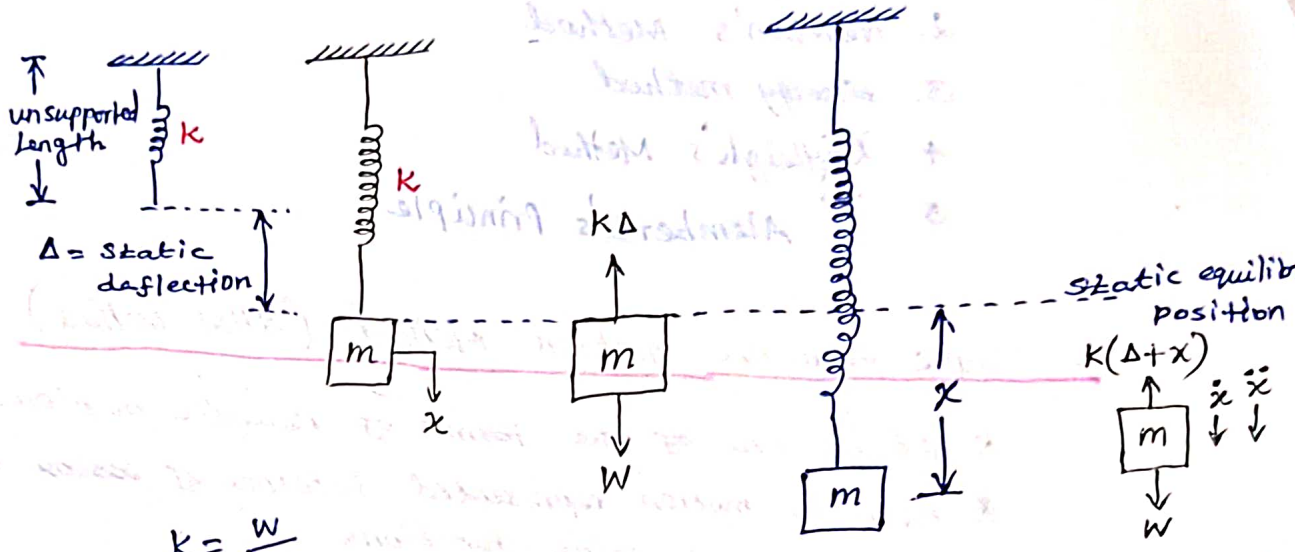 unsupported
Length
K
Δ = static
deflection
K
m
x
KΔ
m
W
x
m
static equilib
position
K(Δ+x)
ẋ ẍ
m
W
K = W